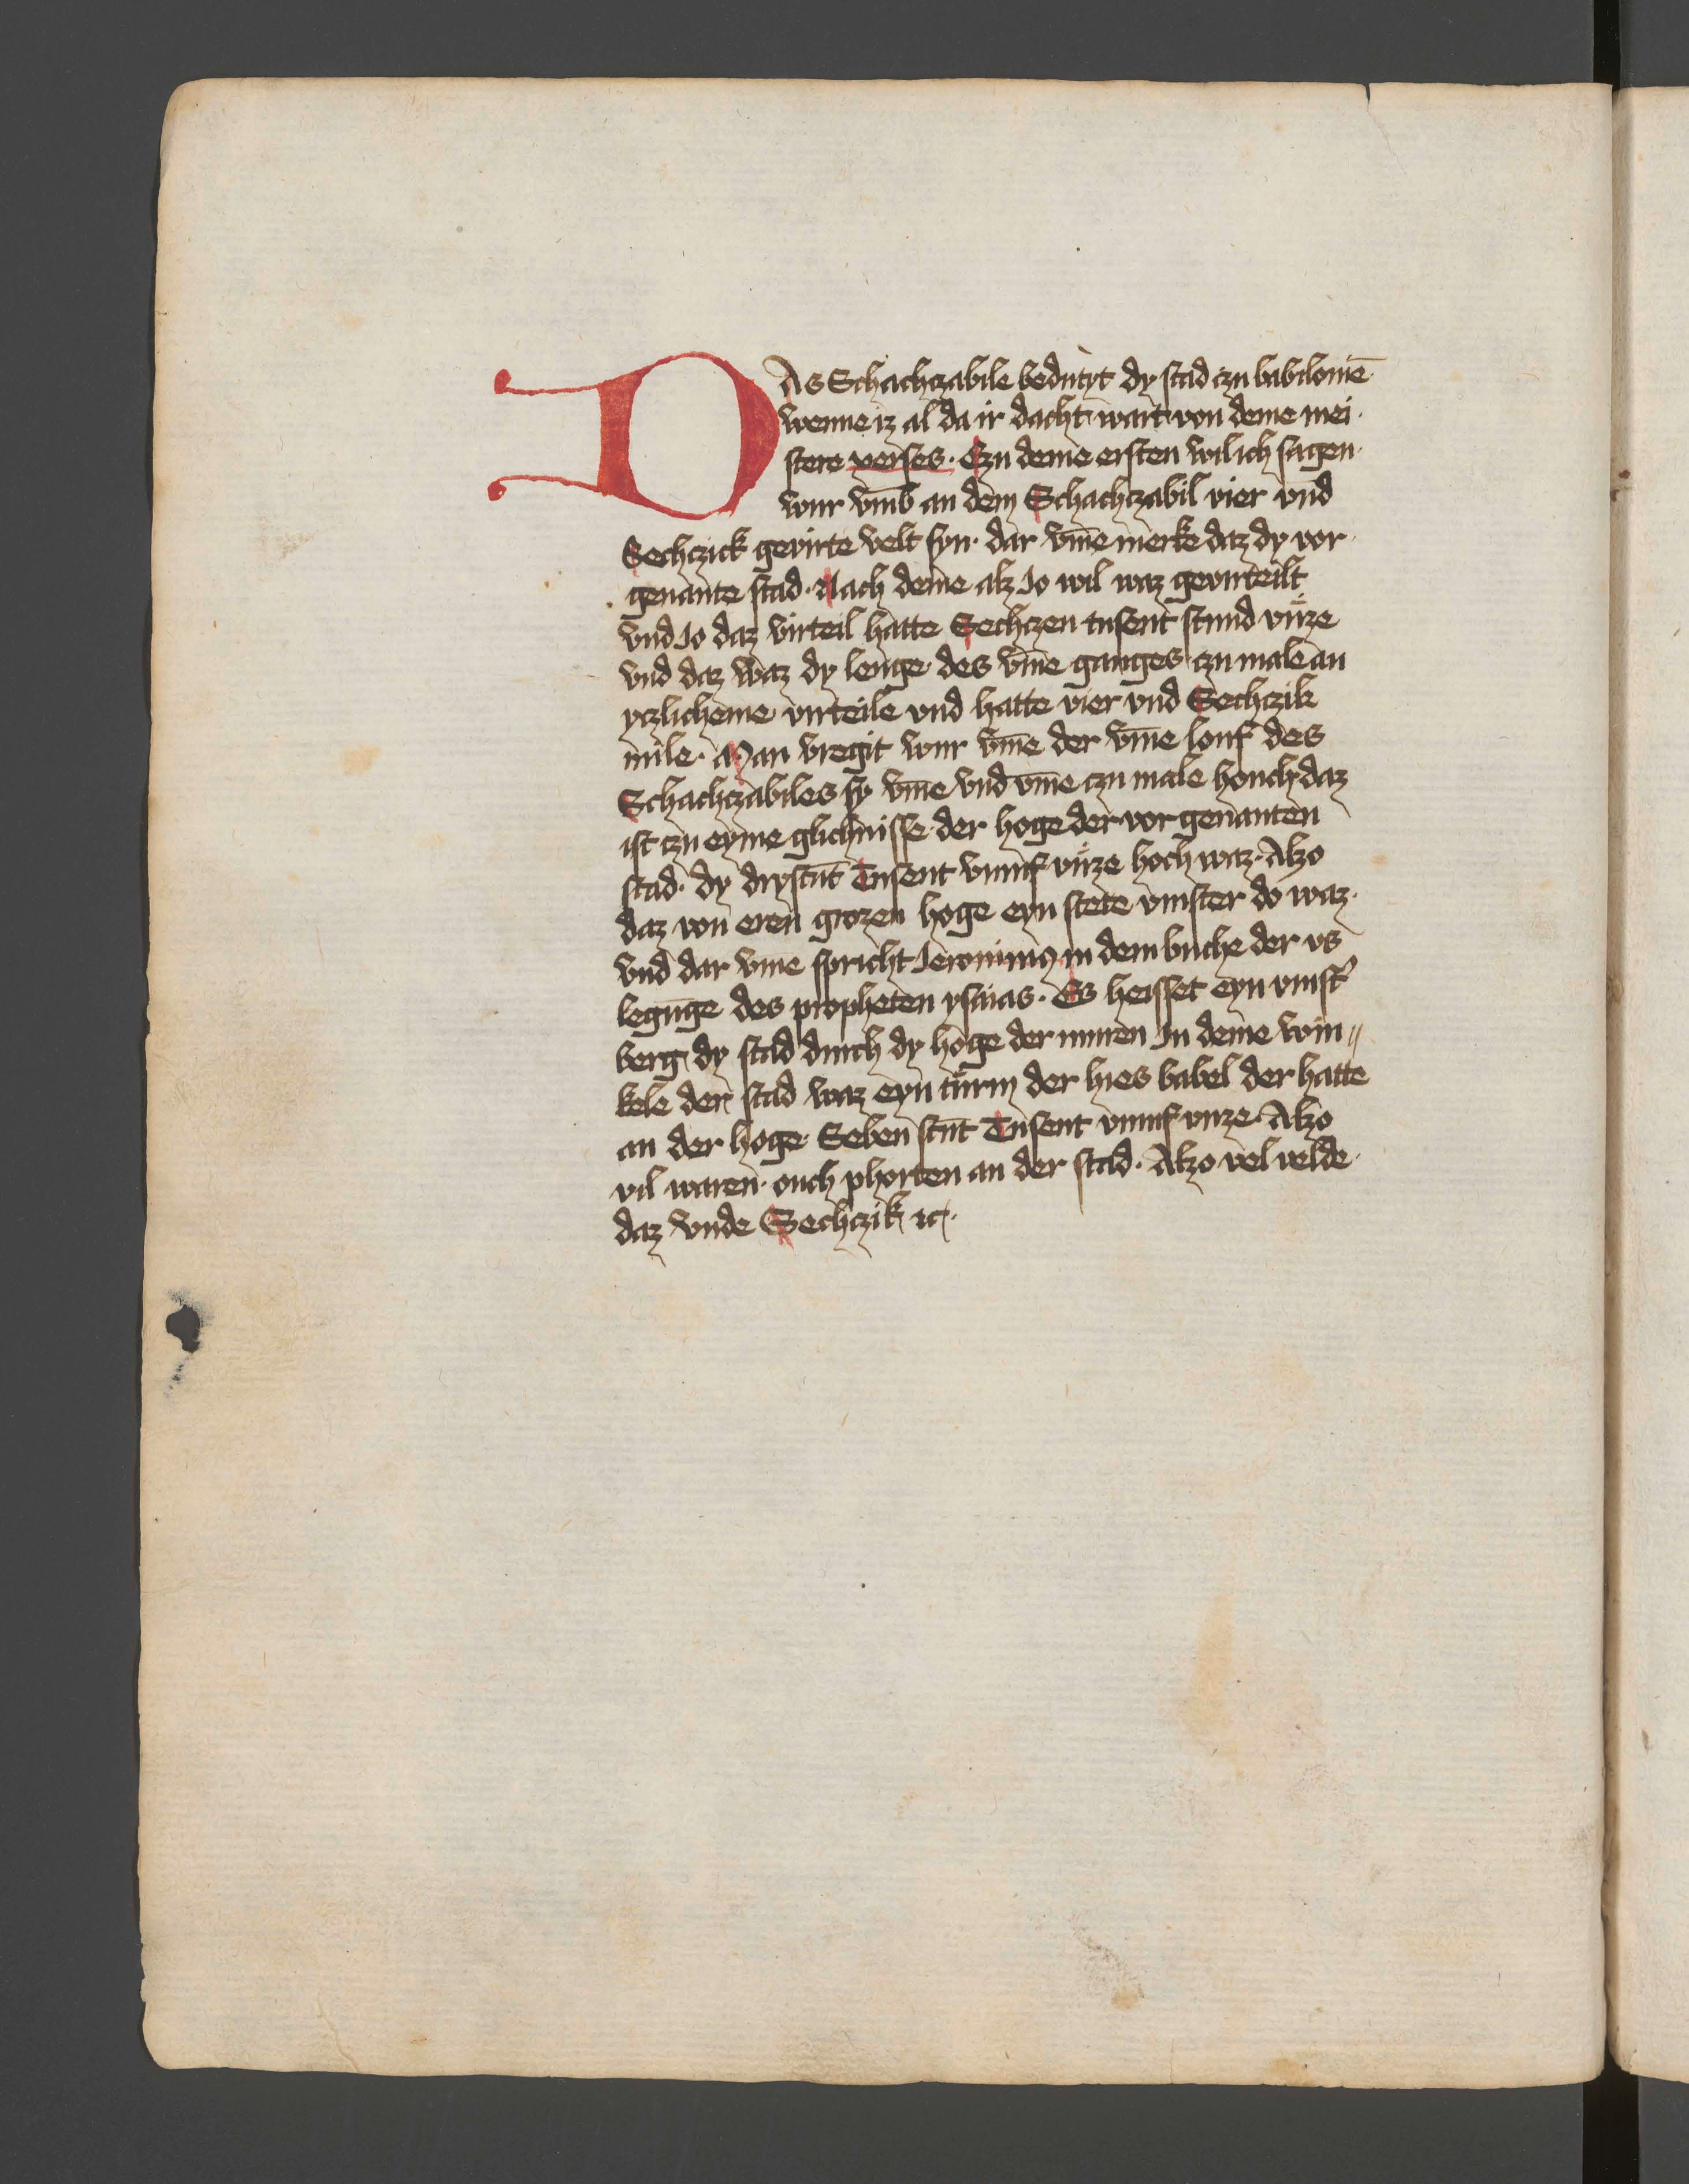 DAs Schachczabile bedutyt dy stad czu babilonie̅
wenne iz al da ir dacht wart von deme mei
stere xerses. Czu deme ersten wil ich sagen
wur vm̅b an dem Schachczabil vier vnd
Sechczick gevirte velt syn. dar vm̅e merke daz dy vor
genante stad. Nach deme alz Jo wil waz gevirteilt
vnd Jo daz virteil hatte Sechczen tusent stund vuͤze
vnd daz waz dy lenge des vm̅e ganges czu male an
yczlicheme virteile vnd hatte vier vnd Sechczik
mile. Man vregit wur vm̅e der vm̅e louf des
Schachczabiles sy vm̅e vnd vm̅e czu male houch daz
ist czu eyme glichnisse der hoge der vor genanten
stad. dy drystu̅t Tusent vumf vuͤze hoch waz. Alzo
daz von eren grozen hoge eyn stete vinster do waz.
vnd dar vme spricht Jeronimus in dem buche der vs
legu̅ge des propheten ysaias. Es heisset eyn vinst'
berg dy stad durch dy hoge der muren In deme win〃
kele der stad waz eyn tuͤrm der hies babel der hatte
an der hoge Seben stu̅t Tusent vumf vuze. Alzo
vil waren ouch phorten an der stad. Alzo vel velde
daz vnde Sechczik ꝛc.